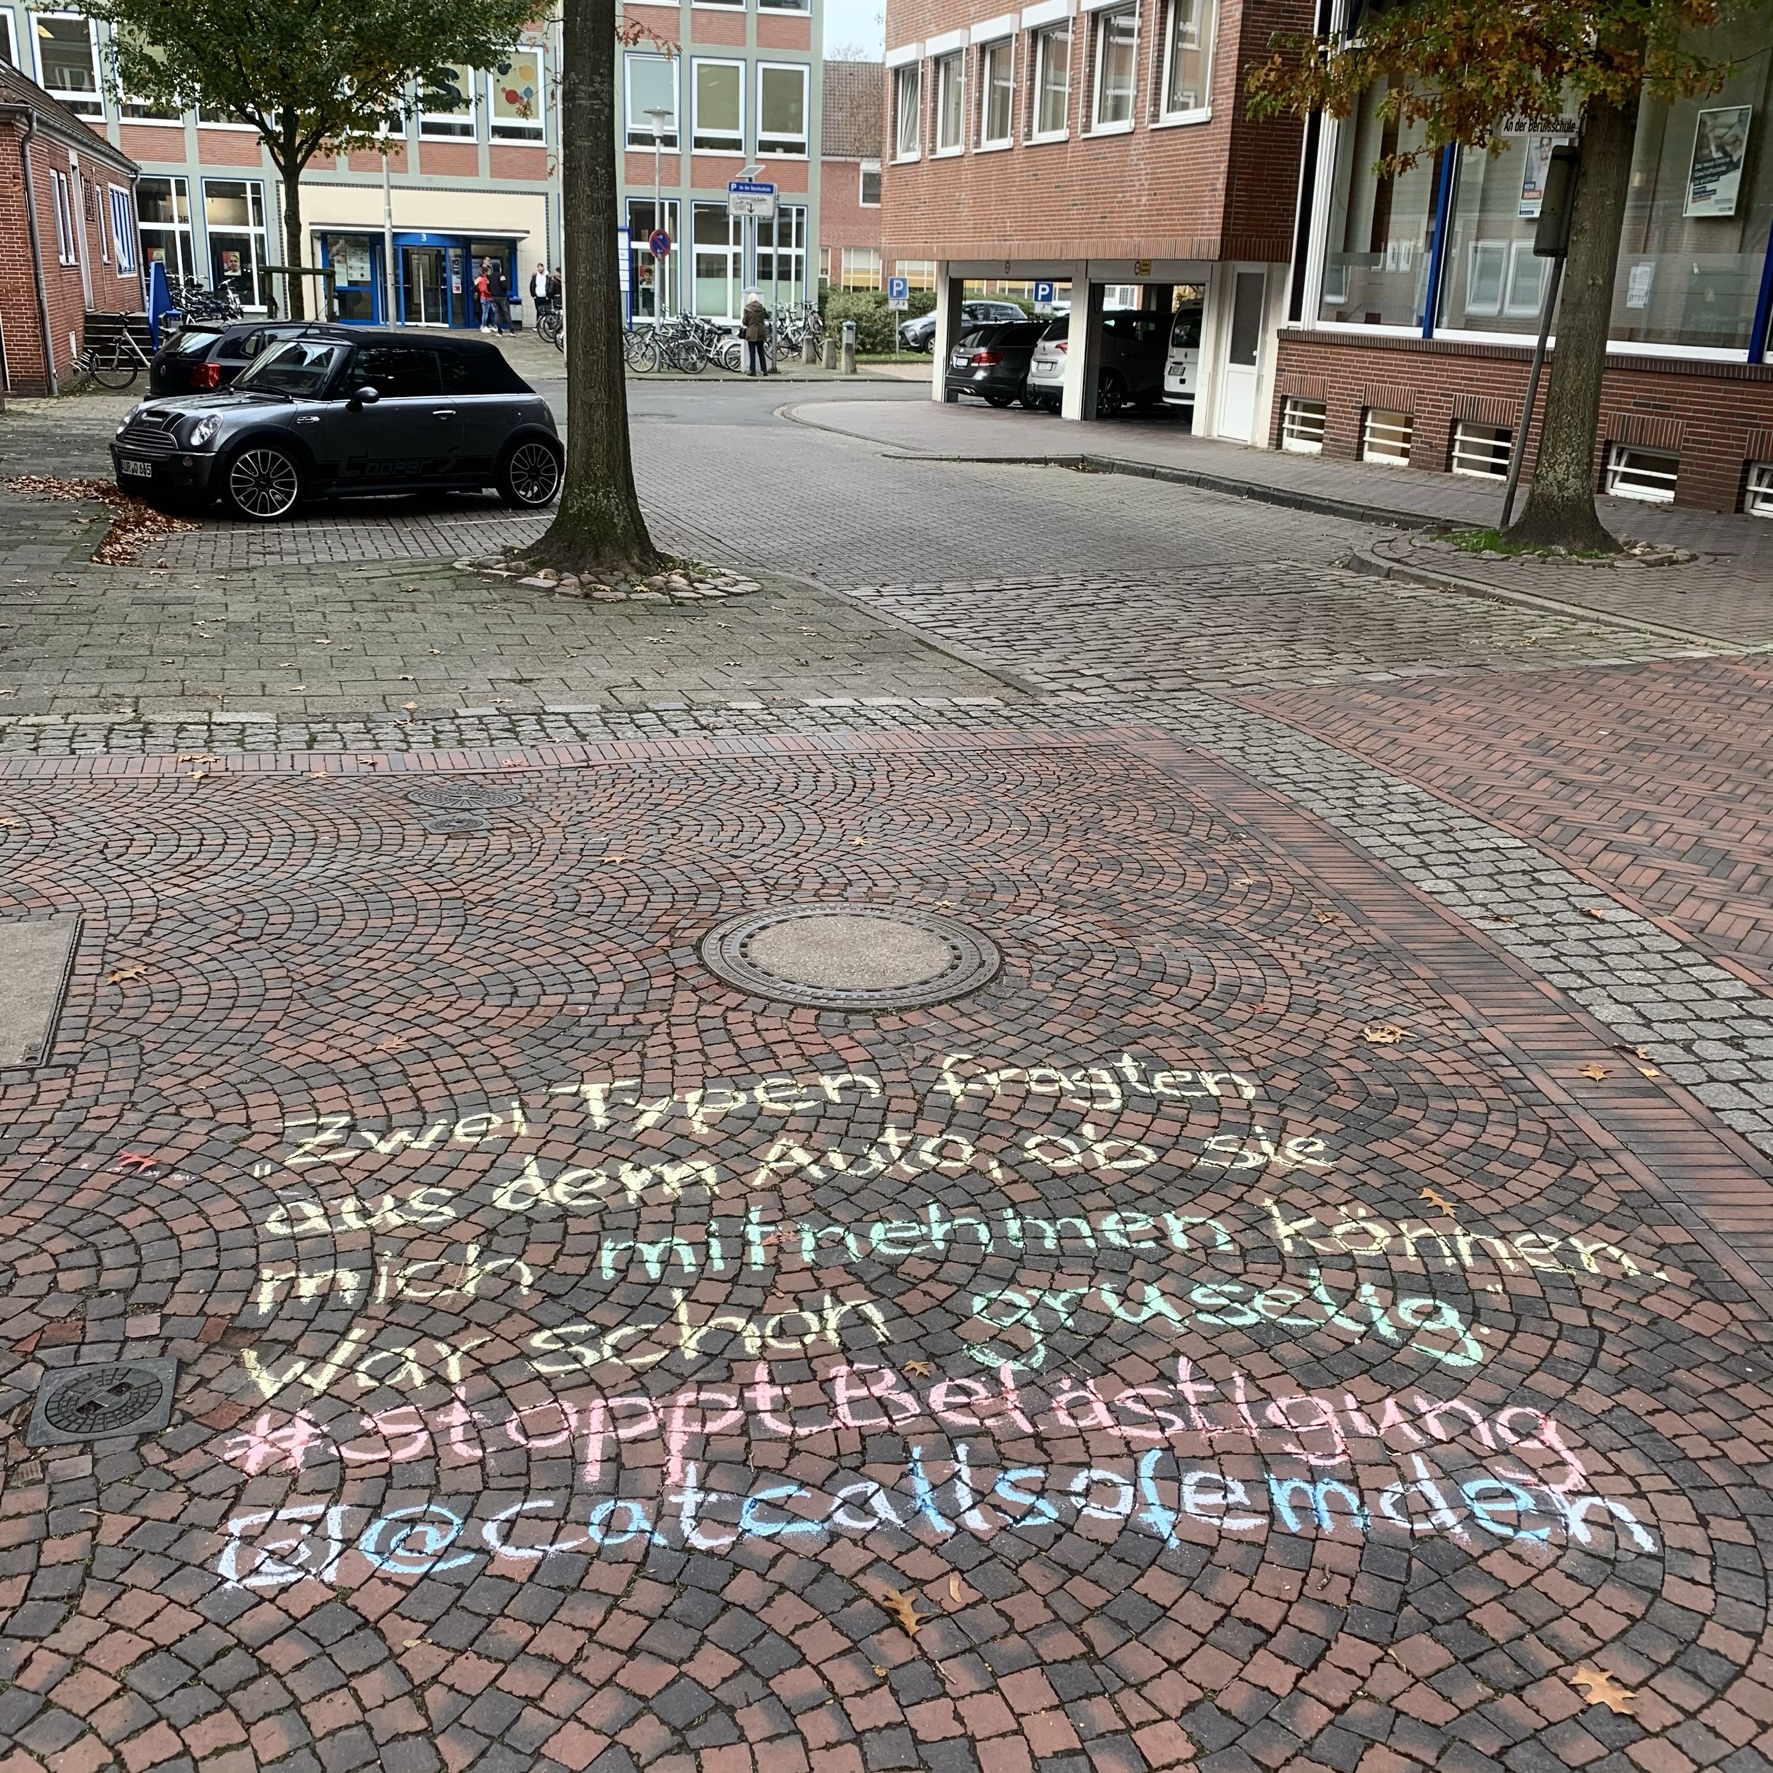 An der Berufsschule
P An der Berufsschule
3
P
P
Cooper S
"Zwei Typen fragten
aus dem Auto, ob sie
mich mitnehmen können.
War schon gruselig."
#stopptBelästigung
@catcallsofemden